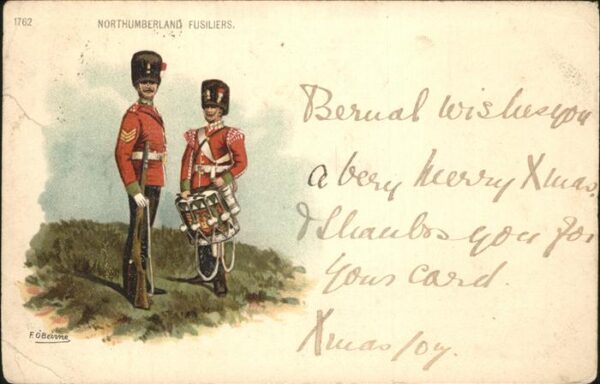 1762
NORTHUMBERLAND FUSILIERS.
Bernal wishes you
a very Merry Xmas.
& thanks you for
your card.
Xmas/04.
F. O'Beirne